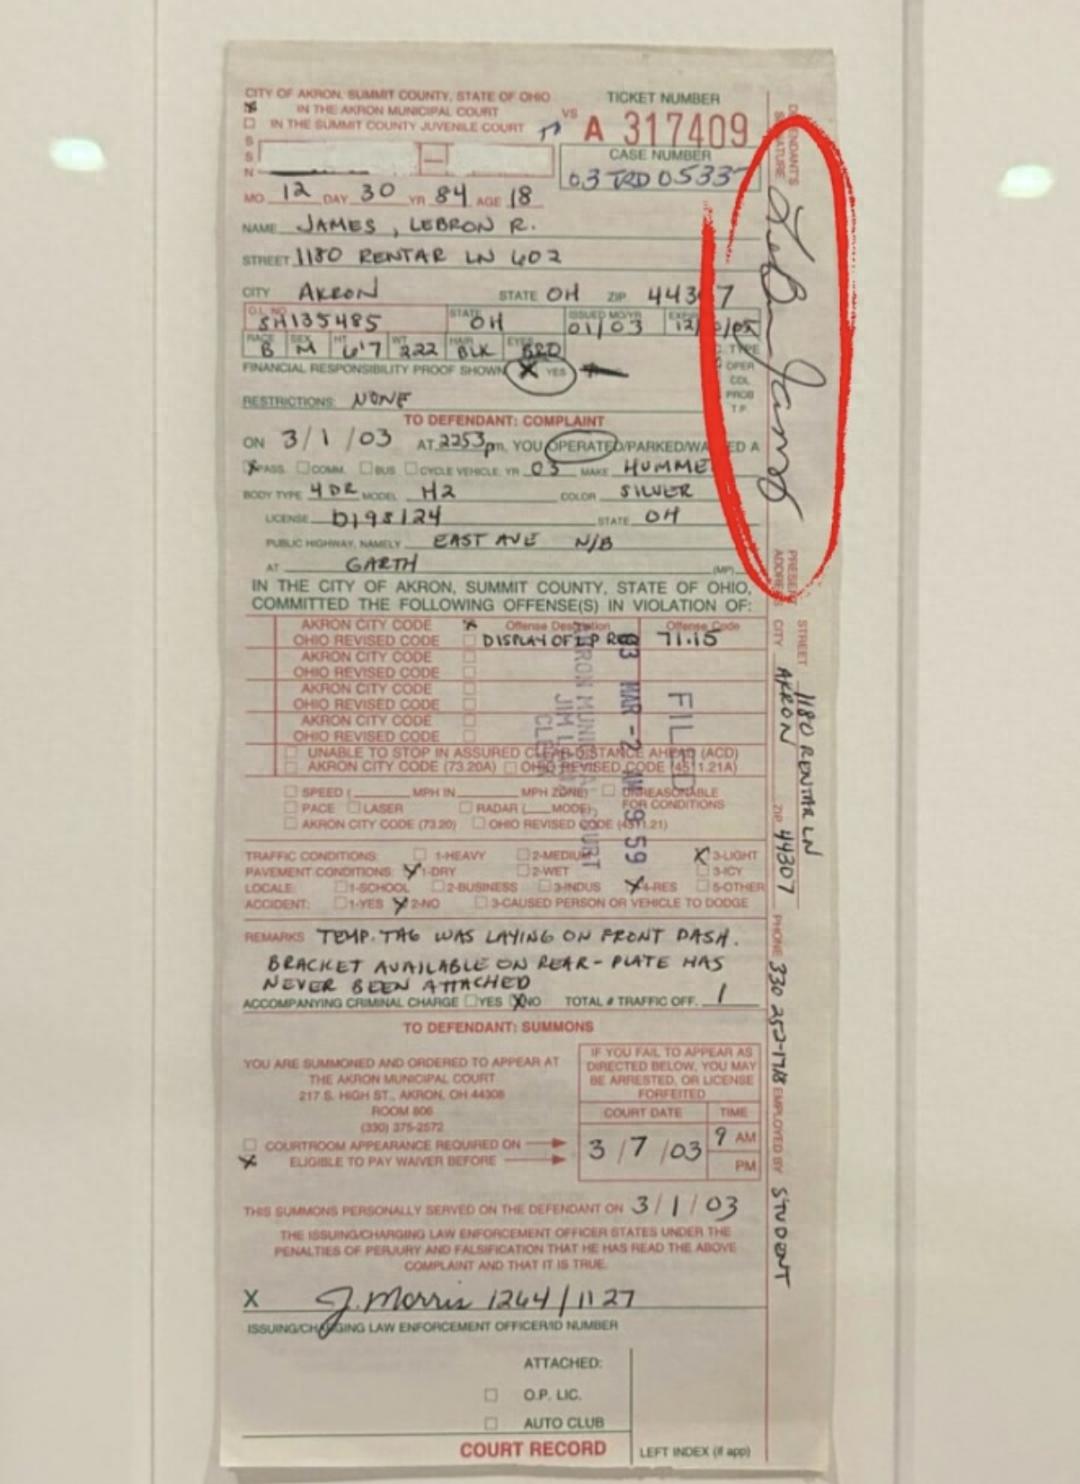 CITY OF AKRON, SUMMIT COUNTY, STATE OF OHIO
IN THE AKRON MUNICIPAL COURT
IN THE SUMMIT COUNTY JUVENILE COURT
VS
TICKET NUMBER
A 317409
CASE NUMBER
03 TRD 05335
SSN
MO 12 DAY 30 YR 84 AGE 18
NAME JAMES, LEBRON R.
STREET 1180 RENTAR LN 602
CITY AKRON STATE OH ZIP 44307
O.L. NO. SH135485 STATE OH ISSUED MO/YR 01/03
RACE B SEX M HT 6'7 WT 222 HAIR BLK EYES BRO
TYPE
OPER
CDL
PROB
T.P.
FINANCIAL RESPONSIBILITY PROOF SHOWN X YES
RESTRICTIONS: NONE
TO DEFENDANT: COMPLAINT
ON 3/1/03 AT 2253 pm, YOU OPERATED/PARKED/WA ED A
PASS. COMM. BUS CYCLE VEHICLE: YR 03 MAKE HUMME
BODY TYPE 4DR MODEL H2 COLOR SILVER
LICENSE D198124 STATE OH
PUBLIC HIGHWAY, NAMELY EAST AVE N/B
AT GARTH (MP)
IN THE CITY OF AKRON, SUMMIT COUNTY, STATE OF OHIO,
COMMITTED THE FOLLOWING OFFENSE(S) IN VIOLATION OF:
AKRON CITY CODE X Offense Description Offense Code
OHIO REVISED CODE DISPLAY OF LP REQ 71.15
AKRON CITY CODE
OHIO REVISED CODE
AKRON CITY CODE
OHIO REVISED CODE
AKRON CITY CODE
OHIO REVISED CODE
UNABLE TO STOP IN ASSURED CLEAR DISTANCE AHEAD (ACD)
AKRON CITY CODE (73.20A) OHIO REVISED CODE (4511.21A)
SPEED ( MPH IN MPH ZONE) UNREASONABLE
PACE LASER RADAR ( MODE) FOR CONDITIONS
AKRON CITY CODE (73.20) OHIO REVISED CODE (4511.21)
FILED
03 MAR -2 AM 9 59
AKRON MUNICIPAL COURT
JIM
CLERK
TRAFFIC CONDITIONS: 1-HEAVY 2-MEDIUM X 3-LIGHT
PAVEMENT CONDITIONS: X 1-DRY 2-WET 3-ICY
LOCALE: 1-SCHOOL 2-BUSINESS 3-INDUS X 4-RES 5-OTHER
ACCIDENT: 1-YES X 2-NO 3-CAUSED PERSON OR VEHICLE TO DODGE
REMARKS TEMP. TAG WAS LAYING ON FRONT DASH.
BRACKET AVAILABLE ON REAR - PLATE HAS
NEVER BEEN ATTACHED
ACCOMPANYING CRIMINAL CHARGE YES X NO TOTAL # TRAFFIC OFF. 1
TO DEFENDANT: SUMMONS
YOU ARE SUMMONED AND ORDERED TO APPEAR AT
THE AKRON MUNICIPAL COURT
217 S. HIGH ST., AKRON, OH 44308
ROOM 806
(330) 375-2572
COURTROOM APPEARANCE REQUIRED ON
X ELIGIBLE TO PAY WAIVER BEFORE
IF YOU FAIL TO APPEAR AS
DIRECTED BELOW, YOU MAY
BE ARRESTED, OR LICENSE
FORFEITED
COURT DATE TIME
3/7/03 9 AM
PM
THIS SUMMONS PERSONALLY SERVED ON THE DEFENDANT ON 3/1/03
THE ISSUING/CHARGING LAW ENFORCEMENT OFFICER STATES UNDER THE
PENALTIES OF PERJURY AND FALSIFICATION THAT HE HAS READ THE ABOVE
COMPLAINT AND THAT IT IS TRUE.
X J. Morris 1264/1127
ISSUING/CHARGING LAW ENFORCEMENT OFFICER/ID NUMBER
ATTACHED:
O.P. LIC.
AUTO CLUB
COURT RECORD LEFT INDEX (if app)
DEFENDANT'S SIGNATURE LeBron James
PRESENT ADDRESS STREET 1180 RENTAR LN
CITY AKRON ZIP 44307
PHONE 330 252-1718 EMPLOYED BY STUDENT